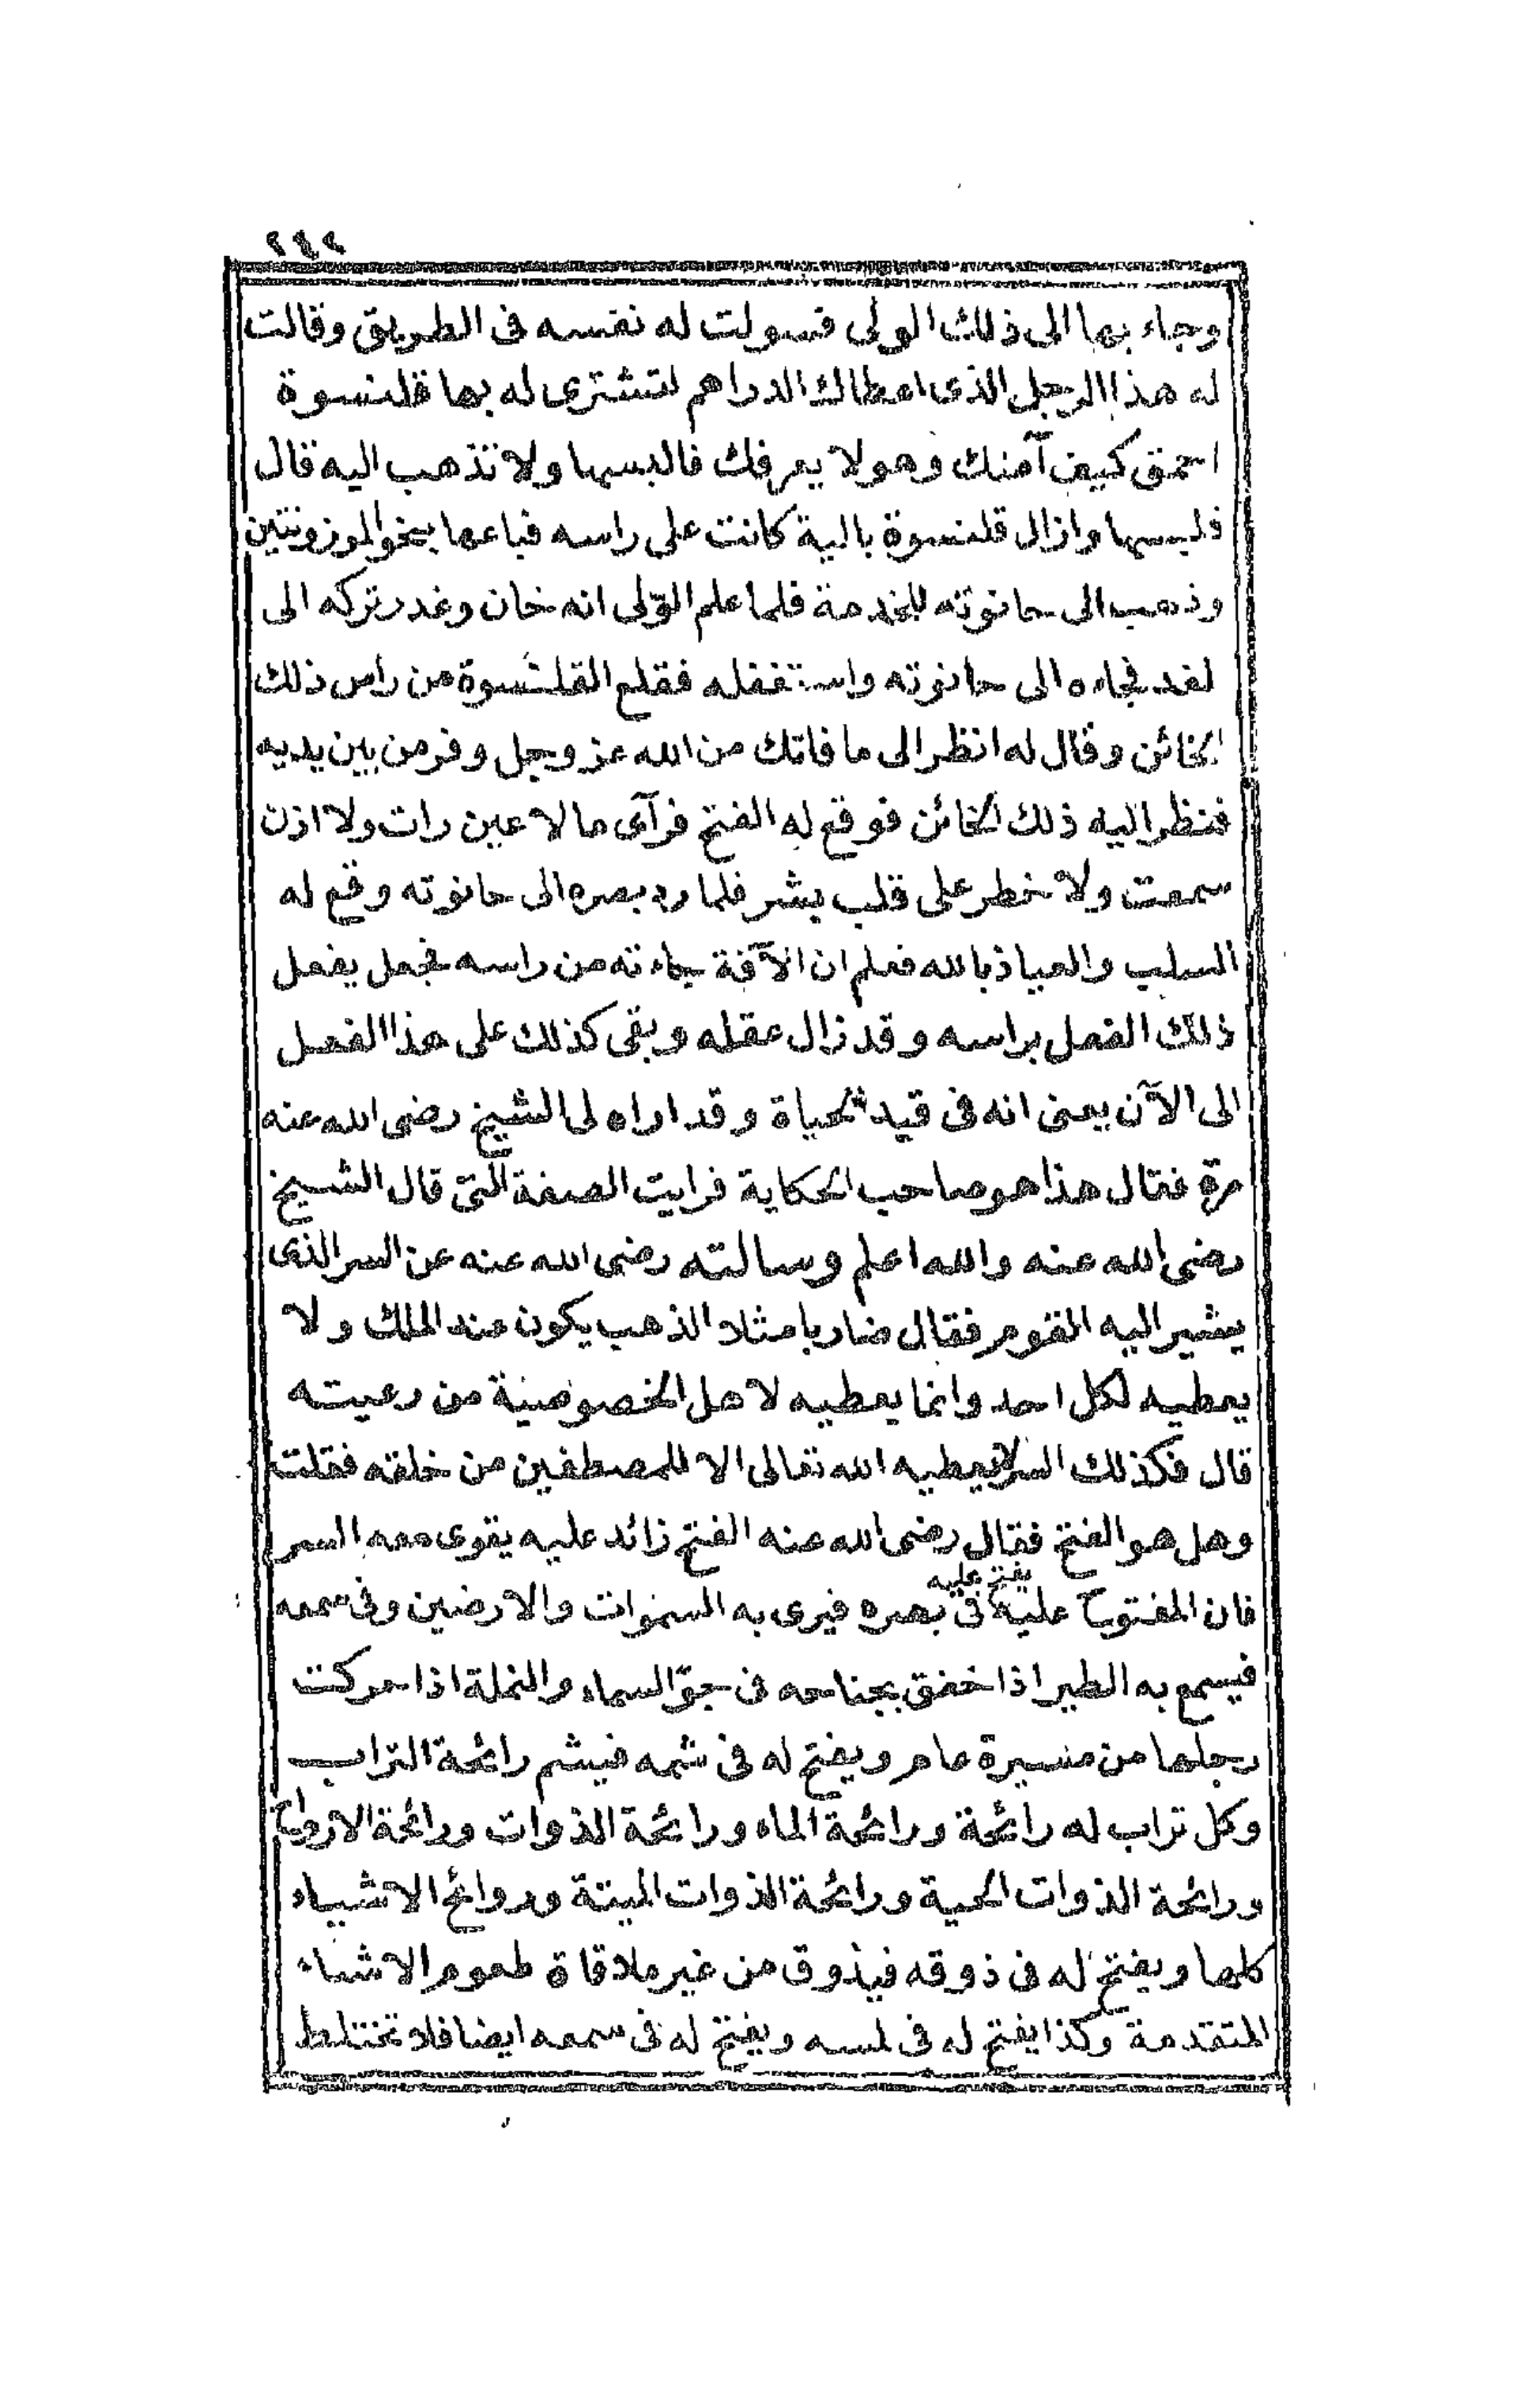 ٢٤٢
وجاء بها الى ذلك الولى فسولت له نفسه فى الطريق وقالت
له هذا الرجل الذى اعطاك الدراهم لتشترى له بها قلنسوة
احمق كيف آمنك وهو لا يعرفك فالبسها ولا تذهب اليه قال
فلبسها وازال قلنسوة بالية كانت على راسه فباعها بنحو الموزونتين
وذهب الى حانوته للخدمة فلما علم الولى انه خان وغدر تركه الى
لغد فجاءه الى حانوته واستغفله فقلع القلنسوة من راس ذلك
الخائن وقال له انظر الى ما فاتك من الله عز وجل وفر من بين يديه
فنظر اليه ذلك الخائن فوقع له الفتح فرآى ما لا عين رات ولا اذن
سمعت ولا خطر على قلب بشر فلما رد بصره الى حانوته وقع له
السلب والعياذ بالله فعلم ان الآفة جاءته من راسه فجعل يفعل
ذلك الفعل براسه وقد زال عقله وبقى كذلك على هذا الفعل
الى الآن يعنى انه فى قيد الحياة وقد اراه لى الشيخ رضى الله عنه
مرة فقال هذا هو صاحب الحكاية فرايت الصفة التى قال الشيخ
رضى الله عنه والله اعلم وسالته رضى الله عنه عن السر الذى
يشير اليه القوم فقال ضاربا مثلا الذهب يكون عند الملك ولا
يعطيه لكل احد وانما يعطيه لاهل الخصوصية من رعيته
قال فكذلك السر لا يعطيه الله تعالى الا للمصطفين من خلقه فقلت
وهل هو الفتح فقال رضى الله عنه الفتح زائد عليه يقوى معه السر
يفتح عليه
فان المفتوح عليه فى بصره فيرى به السموات والارضين وفى سمعه
فيسمع به الطير اذا خفق بجناحه فى جوّ السماء والنملة اذا حركت
رجلها من مسيرة عام ويفتح له فى شمه فيشم رائحة التراب
وكل تراب له رائحة ورائحة الماء ورائحة الذوات ورائحة الارواح
ورائحة الذوات الحية ورائحة الذوات الميتة وروائح الاشياء
كلها ويفتح له فى ذوقه فيذوق من غير ملاقاة طعوم الاشياء
المتقدمة وكذا يفتح له فى لمسه ويفتح له فى سمعه ايضا فلا تختلط